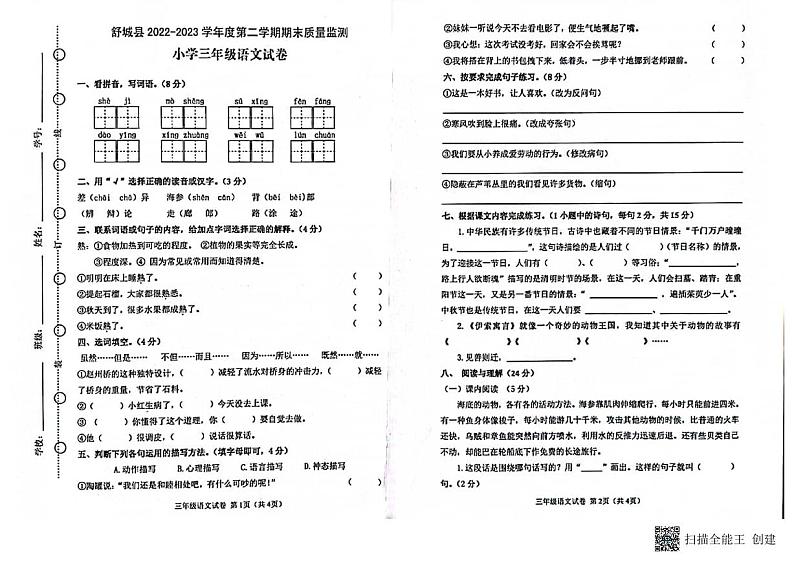 舒城县 2022-2023 学年度第二学期期末质量监测
小学三年级语文试卷
一、看拼音，写词语。(8 分)
shè jì mò shēng sū xǐng fēn fāng
dào yǐng xíng zhuàng wěi wū lún chuán
二、用“√”选择正确的读音或汉字。(3 分)
差(chāi chā)异 海参(shēn cān) 背(bēi bèi)部
(辨 辩)论 走(廊 郎) 路(涂 途)
三、联系词语或句子的内容，给加点字词选择正确的解释。(4分)
熟：①食物加热到可吃的程度。 ②植物的果实等完全长成。
③程度深。④ 因为常见或常用而知道得清楚。
①明明在床上睡熟了。 ( )
②提起石榴，大家都很熟悉。 ( )
③秋天到了，很多水果都成熟了。 ( )
④米饭熟了。 ( )
四、选词填空。(4分)
虽然……但是…… 不但……而且…… 因为……所以…… 既然……就……
①赵州桥的这种独特设计，( )减轻了流水对桥身的冲击力，( )减轻
了桥身的重量，节省了石料。
②( )小红生病了，( )今天没去上课。
③( )你懂得了这个道理，你( )要自觉去做。
④他( )很调皮，( )说话很算话。
五、判断下列各句运用的描写方法。(填字母即可，4 分)
A.动作描写 B.心理描写 C.语言描写 D.神态描写
①陶罐说：“我们还是和睦相处吧，有什么可吵的呢！” ( )
三年级语文试卷 第1页（共4页）
学号：
姓名：
班级：
学校：
线
订
装
②妹妹一听说今天不去看电影了，便生气地撅起了嘴。 ( )
③我心想：这次考试没考好，回家会不会挨骂呢？ ( )
④我将搭在背上的书包拽下来，低着头，一步半寸地挪到老师跟前。 ( )
六、按要求完成句子练习。(8分)
①这是一本好书，让人喜欢。(改为反问句)
②寒风吹到脸上很痛。(改成夸张句)
③我们要从小养成爱劳动的行为。(修改病句)
④隐蔽在芦苇丛里的我们看见许多货物。(缩句)
七、根据课文内容完成练习。(1 小题中的诗句，每句 2 分，共 15 分)
1.中华民族有许多传统节日，古诗中也藏着不同的节日情景：“千门万户曈曈
日，____________”，这句诗描绘的是人们过( )(节日名称)的情景，
为了迎接这一节日，人们有( )、( )等习俗；“____________，
路上行人欲断魂”描写的是清明时节的场景，在这一天，人们会扫墓、踏青；在重
阳节这一天，又是另一番节日的情景：“____________，遍插茱萸少一人”。
中秋节也是传统节日，在这一天人们要____________、____________。
2.《伊索寓言》就像一个奇妙的动物王国，我知道其中关于动物的故事有
《 》《 》《 》……
3.见善则迁，____________。
八、 阅读与理解(24 分)
(一)课内阅读 (5 分)
海底的动物，各有各的活动方法。海参靠肌肉伸缩爬行，每小时只能前进四米。
有一种鱼身体像梭子，每小时能游几十千米，攻击其他动物的时候，比普通的火车
还快，乌贼和章鱼能突然向前方喷水，利用水的反推力迅速后退。还有些贝类自己
不动，却能巴在轮船底下作免费的长途旅行。
1.这段话是围绕哪句话写的？用“____”画出。这样的句子就叫( )
句。(2分)
三年级语文试卷 第2页（共4页）
扫描全能王 创建